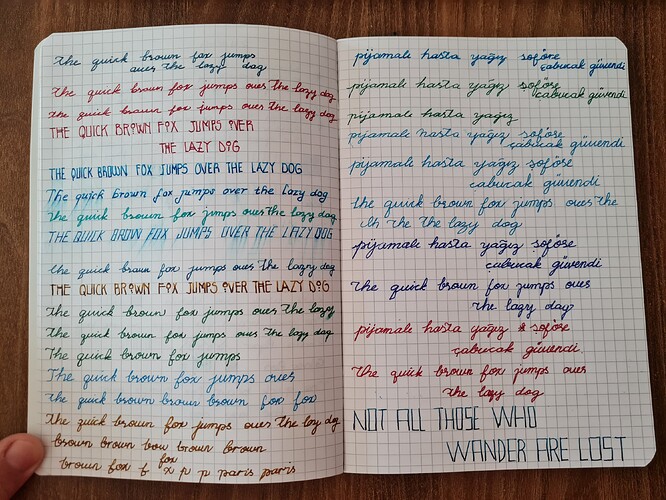 the quick brown fox jumps
over the lazy dog
the quick brown fox jumps over the lazy dog
the quick brown fox jumps over the lazy dog
THE QUICK BROWN FOX JUMPS OVER
THE LAZY DOG
THE QUICK BROWN FOX JUMPS OVER THE LAZY DOG
The quick brown fox jumps over the lazy dog
the quick brown fox jumps over the lazy dog
THE QUICK BROWN FOX JUMPS OVER THE LAZY DOG
the quick brown fox jumps over the lazy dog
THE QUICK BROWN FOX JUMPS OVER THE LAZY DOG
The quick brown fox jumps over the lazy
the quick brown fox jumps over the lazy dog
The quick brown fox jumps
The quick brown fox jumps over
the quick brown brown brown fox fox
the quick brown fox jumps over the lazy dog
brown brown bow brown brown
fox
brown fox f x p p paris paris
pijamalı hasta yağız şoföre
çabucak güvendi
pijamalı hasta yağız şoföre
çabucak güvendi
pijamalı hasta yağız
pijamalı hasta yağız şoföre
çabucak güvendi
pijamalı hasta yağız şoföre
çabucak güvendi
the quick brown fox jumps over the
the the the lazy dog
pijamalı hasta yağız şoföre
çabucak güvendi
the quick brown fox jumps over
the lazy dog
pijamalı hasta yağız şoföre
çabucak güvendi
The quick brown fox jumps over
the lazy dog
NOT ALL THOSE WHO
WANDER ARE LOST